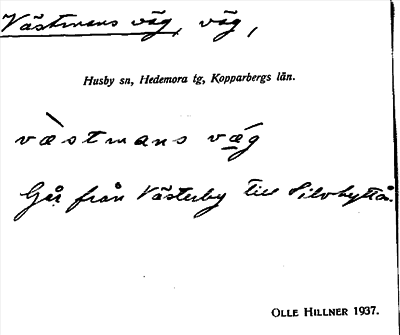 Västmans väg, väg,
Husby sn, Hedemora tg, Kopparbergs län.
væ̀stmans vǽ̲g
Går från Västerby till Silvhyttå.
OLLE HILLNER 1937.